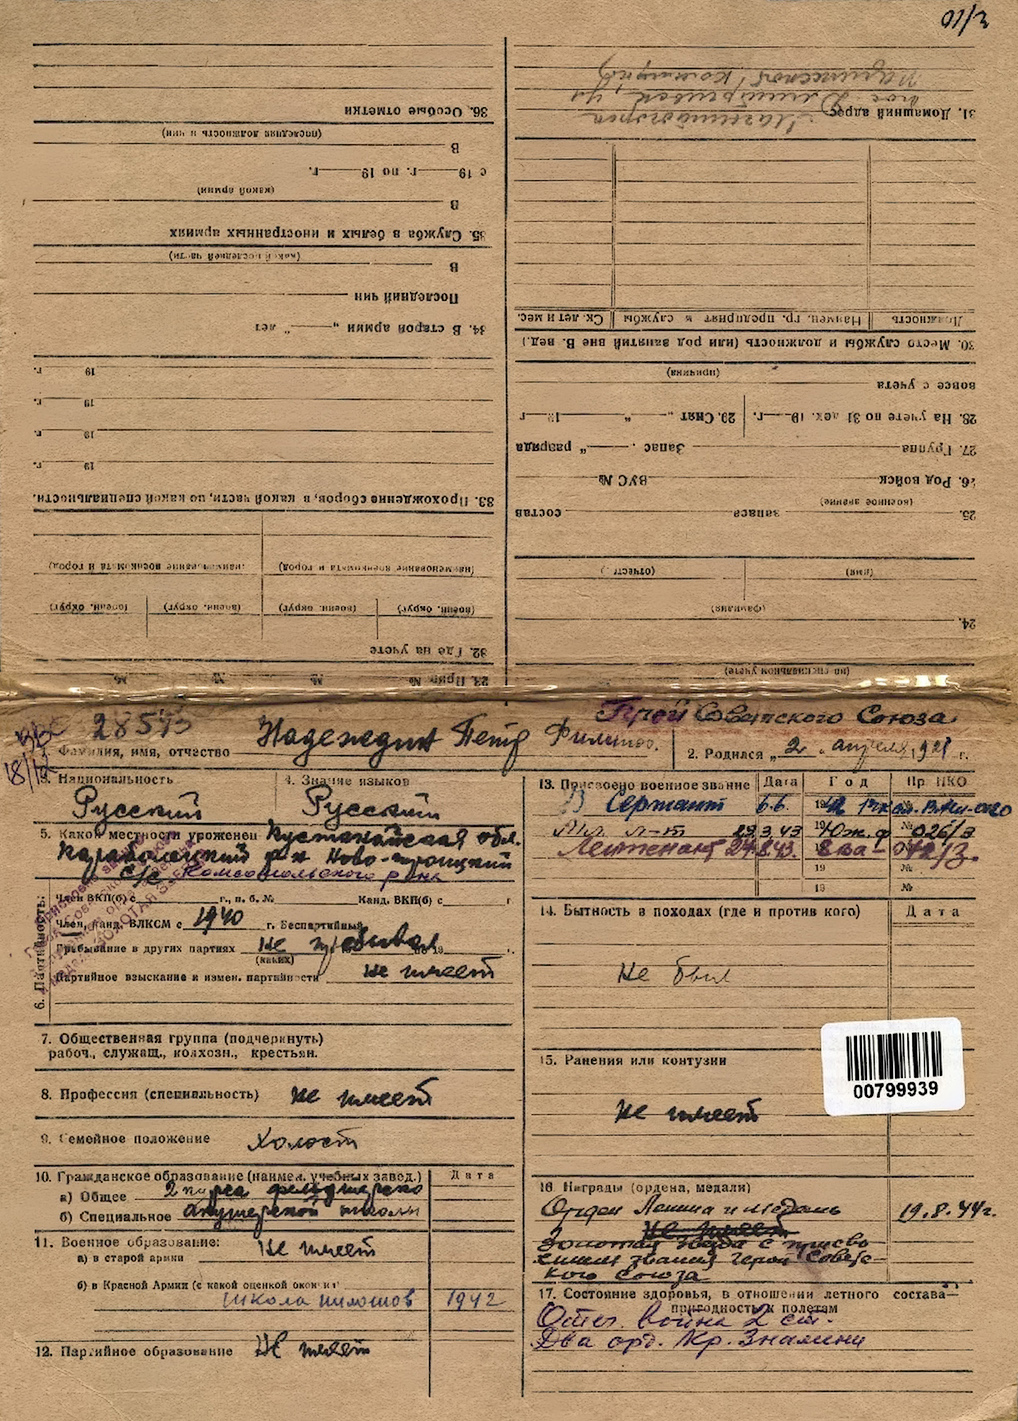 01/3
36. Особые отметки
(последняя должность и чин)
В
с 19 г. по 19 г.
(какой армии)
В
35. Служба в белых и иностранных армиях
(какой последней части)
В
Последний чин
34. В старой армии „ “ лет
19 г.
19 г.
19 г.
19 г.
33. Прохождение сборов, в какой части, по какой специальности.
(наименование военкомата и город) (наименование военкомата и город)
(военн. округ) (военн. округ) (военн. округ) (военн. округ)
32. Где на учете
23. Прип № № № №
31. Домашний адрес Магнитогорск
пос. Димитрова ул
Парижской коммуны
Должность Наимен. гр. предприят и службы Ск. лет и мес.
30. Место службы и должность (или род занятий вне В. вед.)
(причина)
вовсе с учета
28. На учете по 31 дек. 19 г. 29. Снят „ “ 19 г
27. Группа Запас „ “ разряда
26. Род войск ВУС №
(военное звание)
25. запаса состав
(имя) (отчест.)
(фамилия)
24.
(на специальном учете)
ВВС
28573
18/12
Герой Советского Союза
1. Фамилия, имя, отчество Надеждин Петр Филиппо.
2. Родился „2„ апреля 1921 г.
3. Национальность Русский
4. Знание языков Русский
5. Какой местности уроженец Кустанайская обл.
Карабалыкский р-н Ново-троицкий
с/с Комсомольского р-на
6. Партийность:
Член ВКП(б) с г., п. б. № Канд. ВКП(б) с г
Член, канд. ВЛКСМ с 1940 г. Беспартийный
Пребывание в других партиях Не пребывал
(каких)
Партийное взыскание и измен. партийности Не имеет
7. Общественная группа (подчеркнуть)
рабоч., служащ., колхозн., крестьян.
8. Профессия (специальность) Не имеет
9. Семейное положение Холост
10. Гражданское образование (наимен. учебных завед.) Дата
а) Общее 2 курса фельдшерско
б) Специальное акушерской школы
11. Военное образование: Не имеет
а) в старой армии
б) в Красной Армии (с какой оценкой окончил
Школа пилотов 1942
12. Партийное образование Не имеет
13. Присвоено военное звание Дата Год Пр. НКО
Сержант 6.6. 1942
Мл. л-т 29.3.43 Юж.ф № 026/н
Лейтенант 24.8.43.
19 №
19 №
14. Бытность в походах (где и против кого) Дата
Не был
15. Ранения или контузии
Не имеет
00799939
16 Награды (ордена, медали)
Орден Ленина и медаль 19.8.44г.
Не имеет
Золотая звезда с присво
ением звания герой Советс-
кого Союза
17. Состояние здоровья, в отношении летного состава—
пригодность к полетам
Отеч. война 2 ст.
Два орд. Кр. Знамени